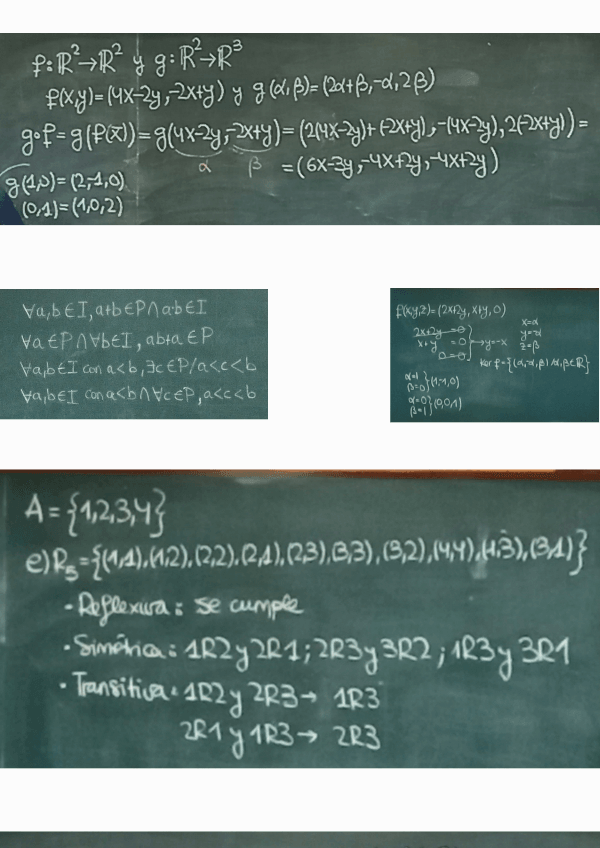 f:ℝ²→ℝ² y g:ℝ²→ℝ³
f(x,y)=(4x-2y,-2x+y) y g(α,β)=(2α+β,-α,2β)
g∘f=g(f(x̄))=g(4x-2y,-2x+y)=(2(4x-2y)+(-2x+y),-(4x-2y),2(-2x+y))=
α β =(6x-3y,-4x+2y,-4x+2y)
g(1,0)=(2,-1,0)
(0,1)=(1,0,2)
∀a,b∈I,a+b∈P∧a·b∈I
∀a∈P∧∀b∈I,ab+a∈P
∀a,b∈I con a<b,∃c∈P/a<c<b
∀a,b∈I con a<b∧∀c∈P,a<c<b
f(x,y,z)=(2x+2y,x+y,0)
2x+2y=0
x+y=0 }→y=-x
0=0
x=α
y=-α
z=β
Ker f={(α,-α,β)/α,β∈ℝ}
α=1
β=0 }(1,-1,0)
α=0
β=1 }(0,0,1)
A={1,2,3,4}
e)R₅={(1,1),(1,2),(2,2),(2,1),(2,3),(3,3),(3,2),(4,4),(1,3),(3,1)}
·Reflexiva: se cumple
·Simétrica: 1R2 y 2R1; 2R3 y 3R2; 1R3 y 3R1
·Transitiva: 1R2 y 2R3→ 1R3
2R1 y 1R3→ 2R3